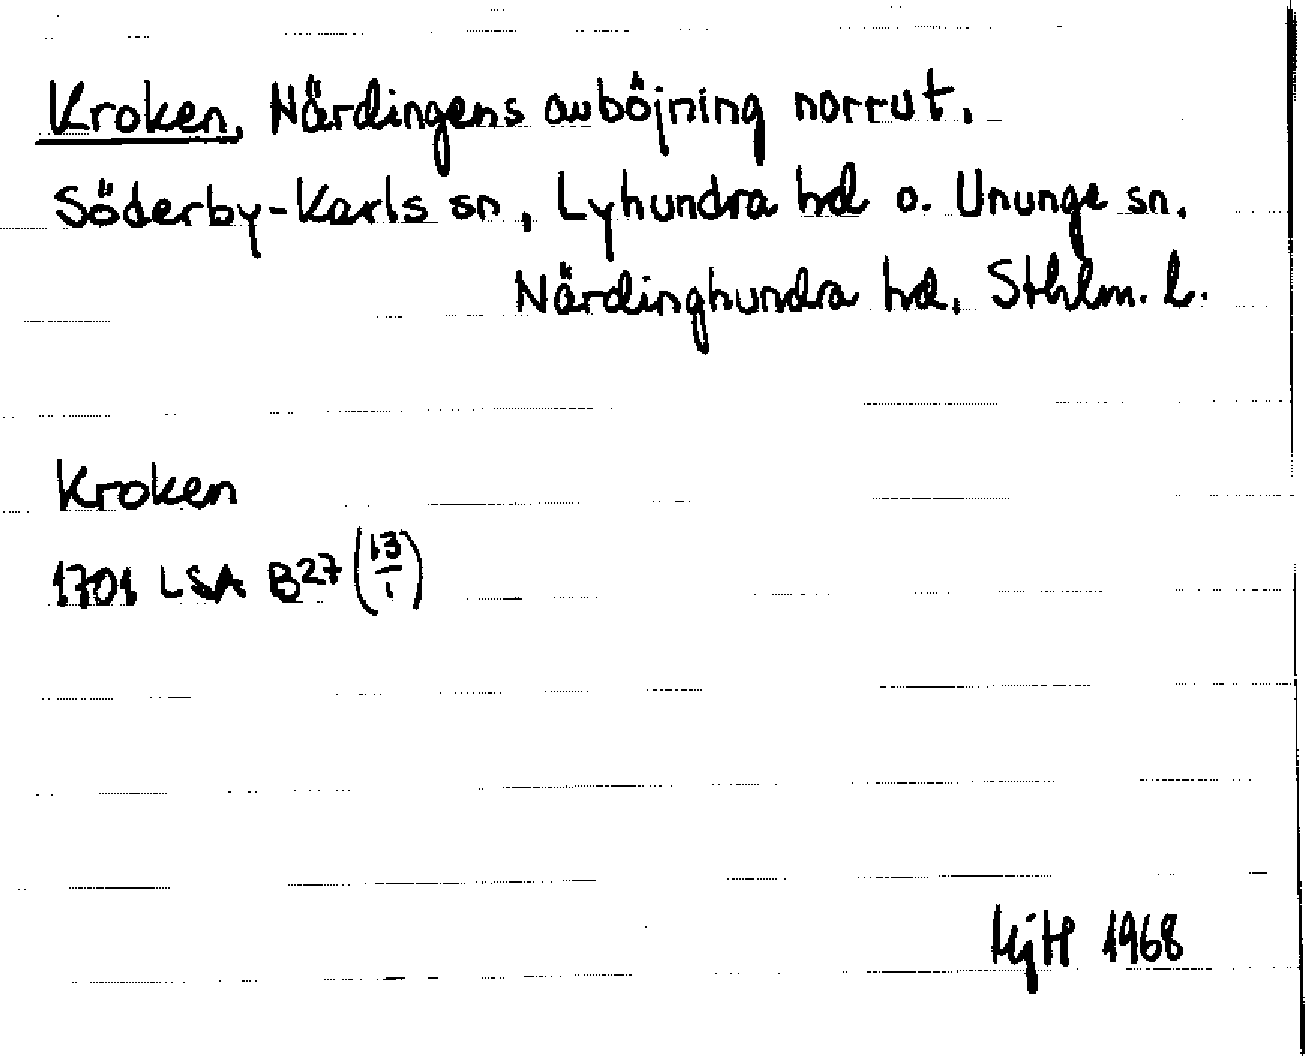 Kroken, Närdingens avböjning norrut.
Söderby-Karls sn, Lyhundra hd o. Ununge sn.
Närdinghundra hd, Sthlm. l.
Kroken
1701 LSA B27 (13/1)
HjH 1968